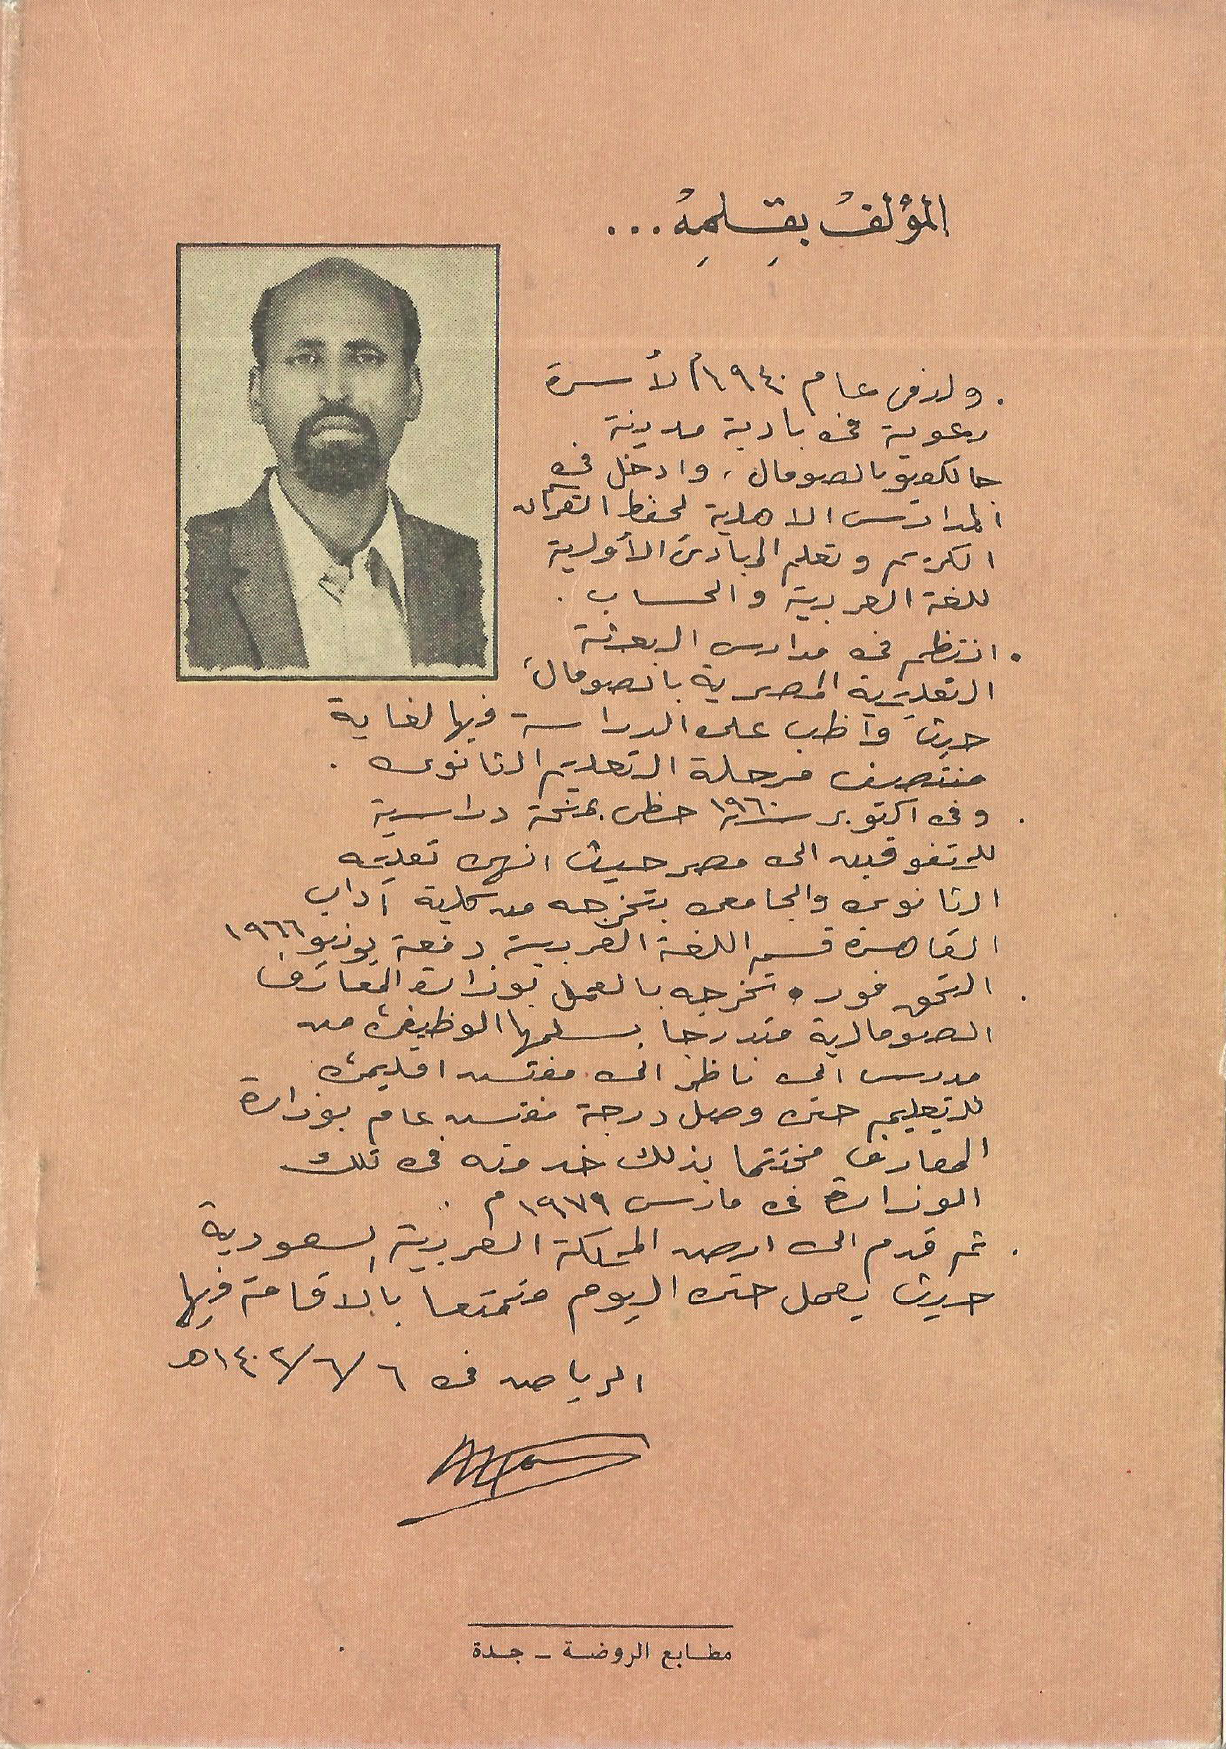 المؤلف بقلمه...
. ولد في عام ١٩٤٠م لأسرة
رعوية في بادية مدينة
جالكعيو بالصومال، وادخل في
المدارس الاهلية لحفظ القرآن
الكريم وتعلم المبادئ الأولية
للغة العربية والحساب .
• انتظم في مدارس البعثة
التعليمية المصرية بالصومال،
حيث واظب على الدراسة فيها لغاية
منتصف مرحلة التعليم الثانوي .
. وفي اكتوبر سنة ١٩٦٠ حظى بمنحة دراسية
للمتفوقين الى مصر حيث انهى تعليمه
الثانوي والجامعي بتخرجه من كلية آداب
القاهرة قسم اللغة العربية دفعة يونيو ١٩٦٦
. التحق فور تخرجه بالعمل بوزارة المعارف
الصومالية متدرجا بسلمها الوظيفي من
مدرس الى ناظر الى مفتش اقليمي
للتعليم حتى وصل درجة مفتش عام بوزارة
المعارف مختتما بذلك خدمته في تلك
الوزارة في مارس ١٩٧٩م .
. ثم قدم الى ارض المملكة العربية السعودية
حيث يعمل حتى اليوم متمتعا بالاقامة فيها
الرياض في ٦/٦/١٤٠٢هـ
مطابع الروضة - جدة